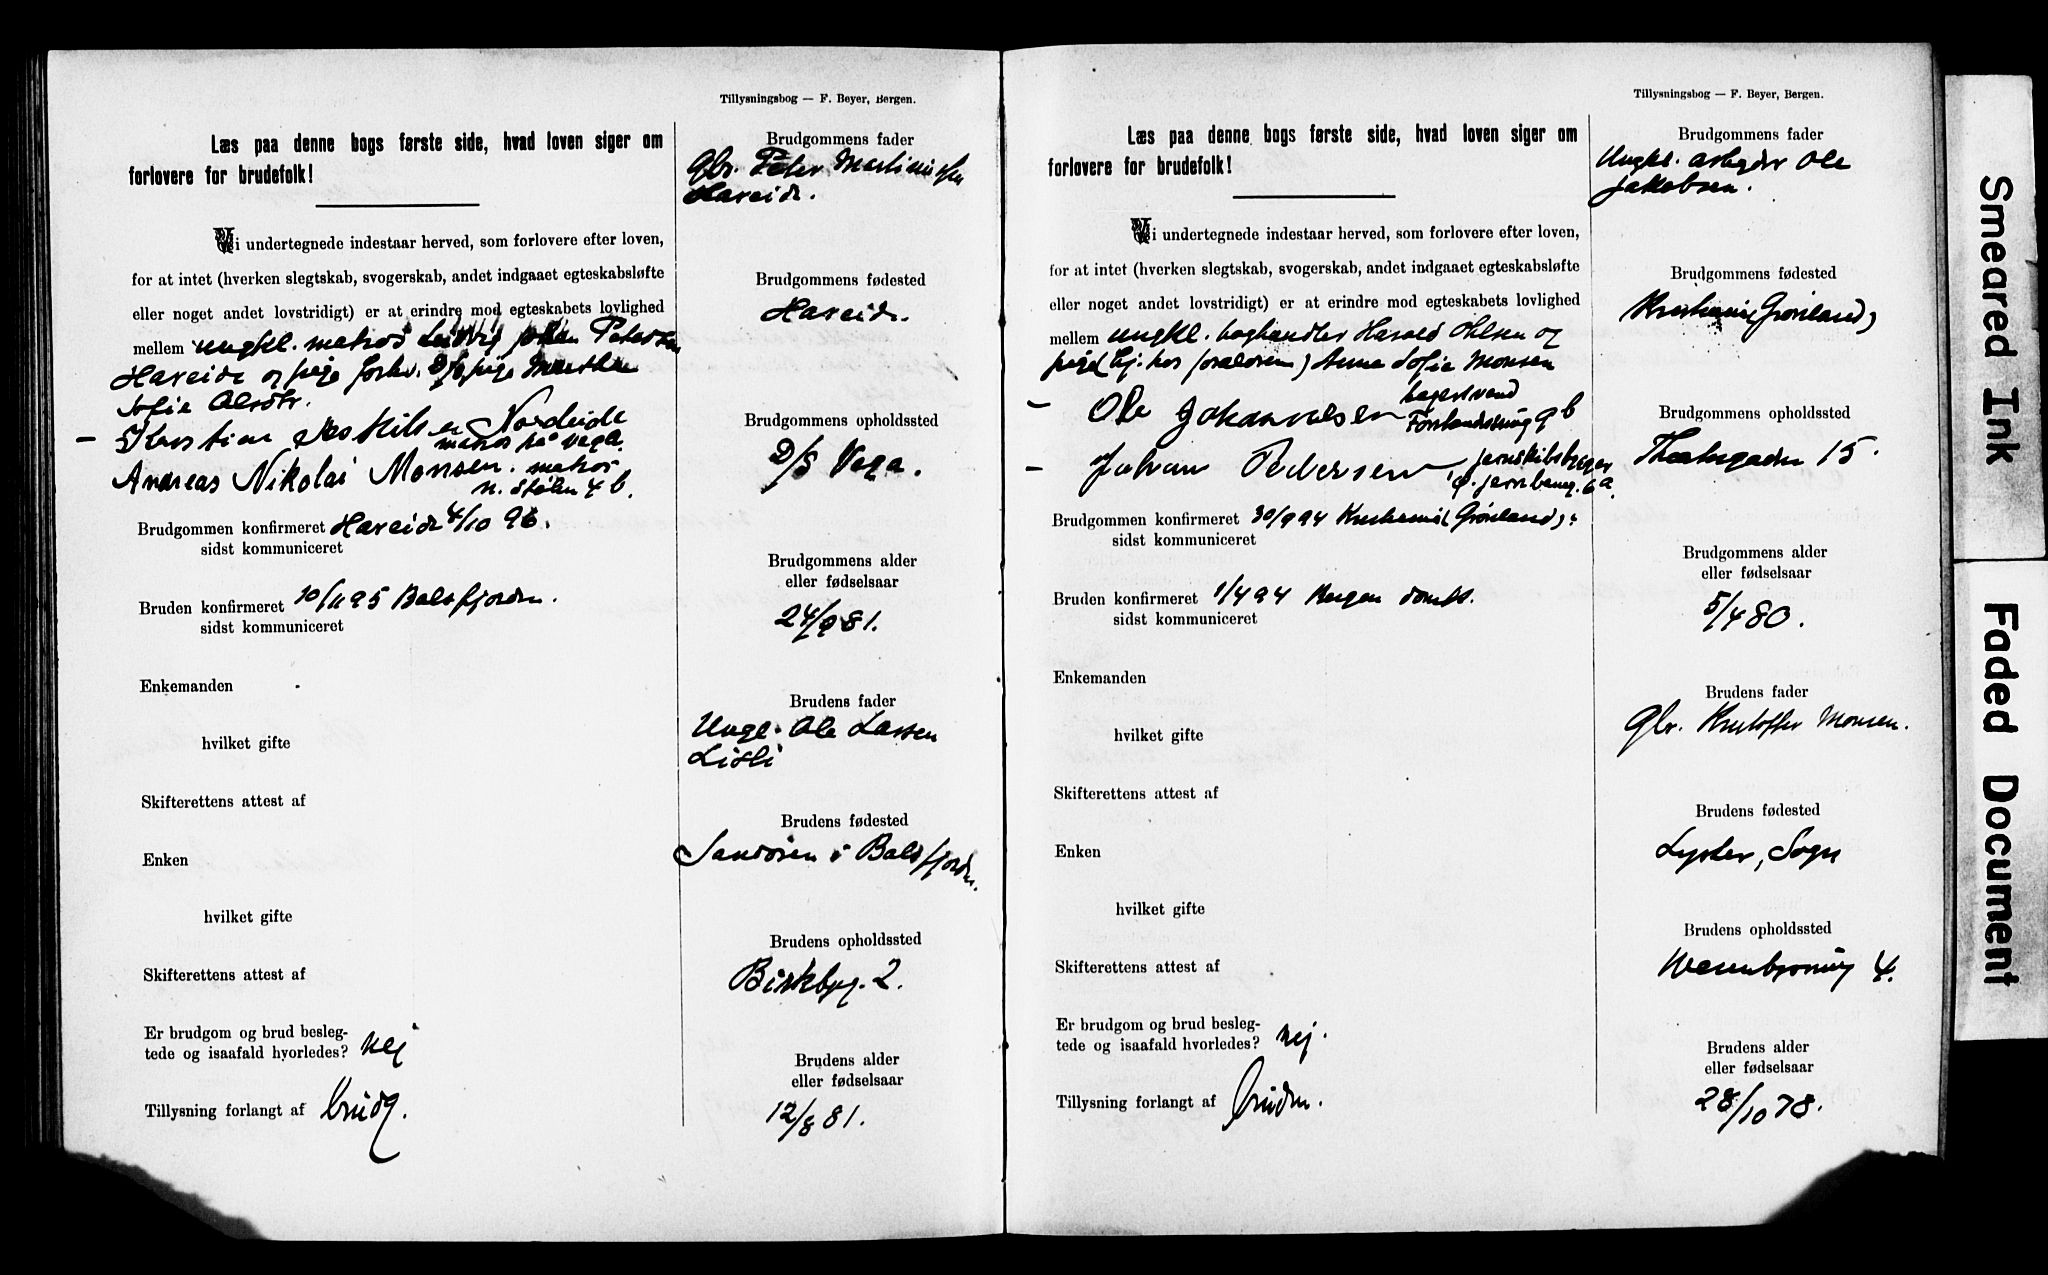 Tillysningsbog — F. Beyer, Bergen.
Læs paa denne bogs første side, hvad loven siger om
forlovere for brudefolk!
Vi undertegnede indestaar herved, som forlovere efter loven,
for at intet (hverken slegtskab, svogerskab, andet indgaaet egteskabsløfte
eller noget andet lovstridigt) er at erindre mod egteskabets lovlighed
mellem ungkl. matros Ludvig Johan Petersen
Hareide og pige forhv. D/S pige Marthe
Sofie Olsdtr.
Karstian Eskilsen Nordeide
matros på Vega
Andreas Nikolai Monsen. matros
n. Stølen 4 b.
Brudgommen konfirmeret Hareide 4/10 96.
sidst kommuniceret
Bruden konfirmeret 10/11 95 Balsfjorden.
sidst kommuniceret
Enkemanden
hvilket gifte
Skifterettens attest af
Enken
hvilket gifte
Skifterettens attest af
Er brudgom og brud besleg-
tede og isaafald hvorledes? Nej
Tillysning forlangt af brudg.
Brudgommens fader
Gbr. Peter Martinussen
Hareide.
Brudgommens fødested
Hareide.
Brudgommens opholdssted
D/S Vega.
Brudgommens alder
eller fødselsaar
24/9 81.
Brudens fader
Ungk. Ole Larsen
Lisli
Brudens fødested
Sandøren i Balsfjorden.
Brudens opholdssted
Birkbgg. 2.
Brudens alder
eller fødselsaar
12/8 81.
Tillysningsbog — F. Beyer, Bergen.
Læs paa denne bogs første side, hvad loven siger om
forlovere for brudefolk!
Vi undertegnede indestaar herved, som forlovere efter loven,
for at intet (hverken slegtskab, svogerskab, andet indgaaet egteskabsløfte
eller noget andet lovstridigt) er at erindre mod egteskabets lovlighed
mellem ungkl. boghandler Harald Ohlsen og
pige (hj. hos forældrene) Anna Sofie Monsen
Ole Johannesen
9 b
Johan Pedersen jernskibsbygger
6 a.
Brudgommen konfirmeret 30/9 94 Kristiania (Grønland).
sidst kommuniceret
Bruden konfirmeret 1/4 94 Bergen domk.
sidst kommuniceret
Enkemanden
hvilket gifte
Skifterettens attest af
Enken
hvilket gifte
Skifterettens attest af
Er brudgom og brud besleg-
tede og isaafald hvorledes? Nej.
Tillysning forlangt af bruden.
Brudgommens fader
Ungkl. arbeider Ole
Jakobsen.
Brudgommens fødested
Kristiania (Grønland)
Brudgommens opholdssted
Theatergaden 15.
Brudgommens alder
eller fødselsaar
5/4 80.
Brudens fader
Gbr. Kristoffer Monsen.
Brudens fødested
Lyster, Sogn
Brudens opholdssted
4.
Brudens alder
eller fødselsaar
28/10 78.
Smeared Ink
Faded Document